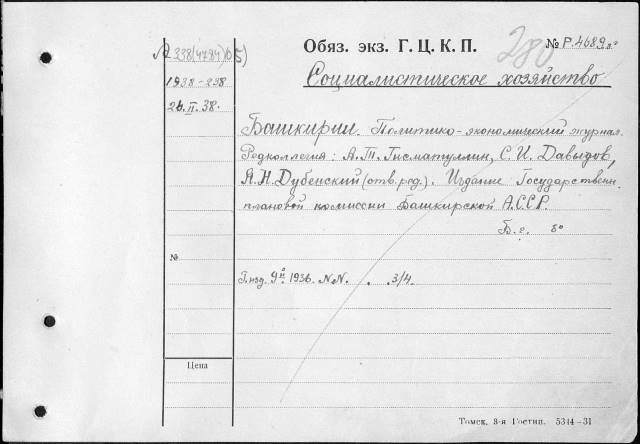 338(47.84)(05)
1938-238
26.II.38.
№
Цена
Обяз. экз. Г. Ц. К. П.
280
№ Р.4689 8°
Социалистическое хозяйство
Башкирии. Политико-экономический журнал.
Редколлегия: А.Т. Гисматуллин, С.И. Давыдов,
Я.Н. Дубенский (отв. ред.). Издание Государственн.
плановой комиссии Башкирской А.ССР.
Б.г. 8°
Г.изд. 9й. 1936. N.N. . 3/4.
Томск, 3-я Гостип. 5344-31